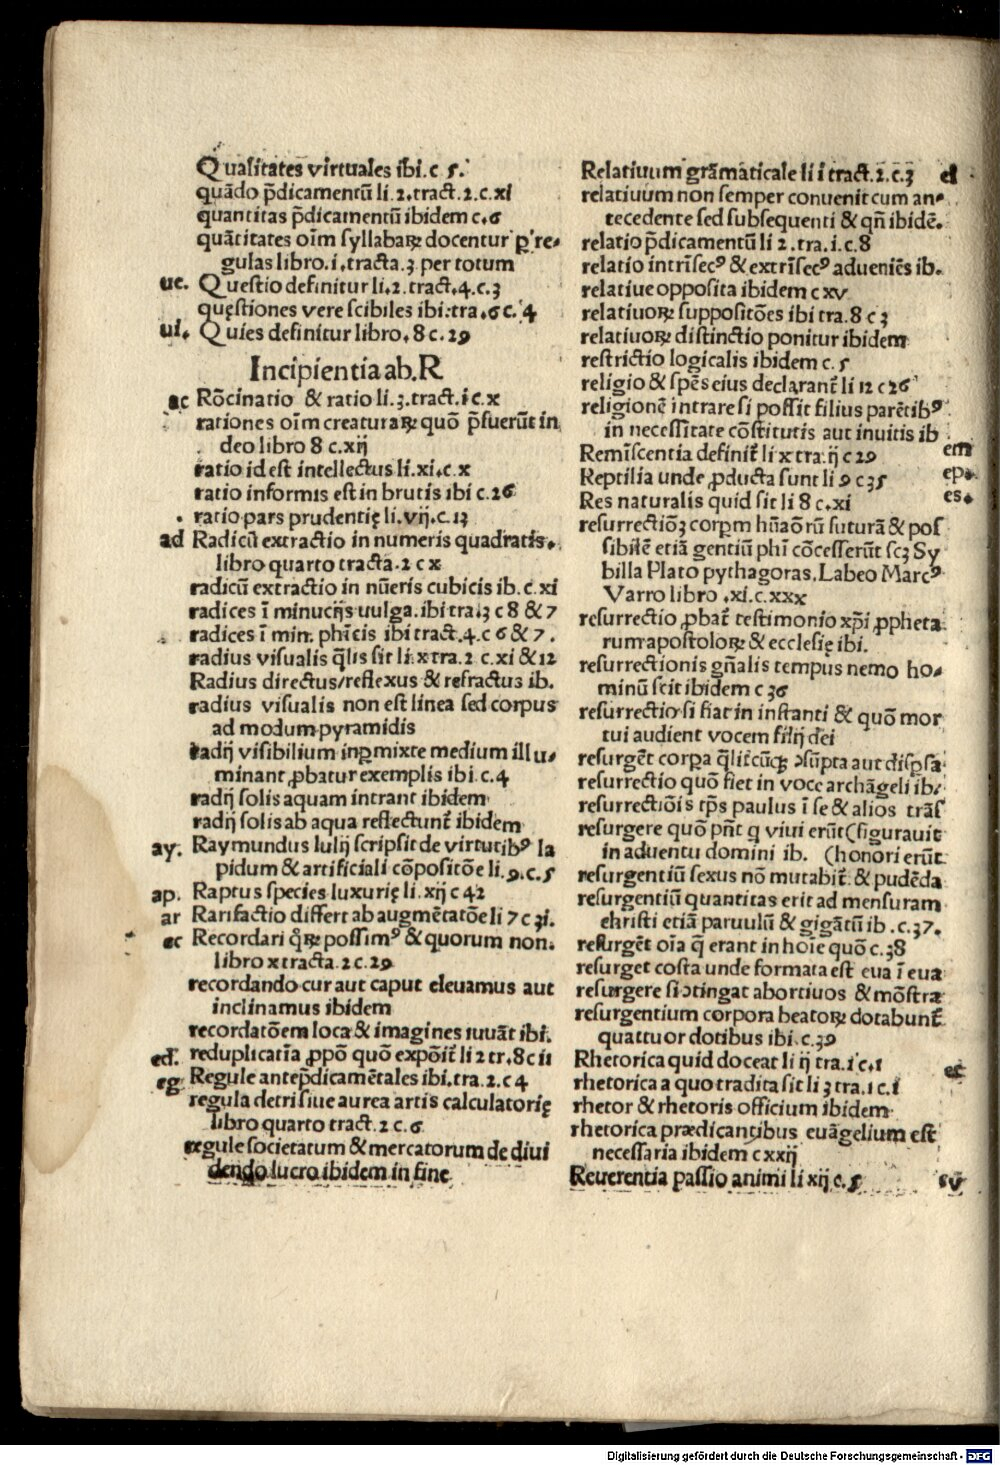 Qualitates virtuales ibi.c 5.
quādo p̄dicamentū li.2.tract.2.c.xi
quantitas p̄dicamentū ibidem c.6
quātitates oīm syllabaꝝ docentur ꝑ re-
gulas libro.i.tracta.3 per totum
ue. Questio definitur li.2.tract.4.c.3
quęstiones vere scibiles ibi:tra.6 c.4
ui. Quies definitur libro.8 c.29
Incipientia ab.R
ac Rōcinatio & ratio li.3.tract.i c.x
rationes oīm creaturaꝝ quō p̄fuerūt in
deo libro 8 c.xij
ratio id est intellectus li.xi.c.x
ratio informis est in brutis ibi c.26
ratio pars prudentię li.vij.c.13
ad Radicū extractio in numeris quadratis.
libro quarto tracta.2 c x
radicū extractio in nūeris cubicis ib.c.xi
radices ī minucijs uulga.ibi tra.3 c 8 & 7
radices ī min. phīcis ibi tract.4.c 6 & 7.
radius visualis q̄lis sit li.x tra.2 c.xi & 12
Radius directus/reflexus & refractus ib.
radius visualis non est linea sed corpus
ad modum pyramidis
radij visibilium inꝑmixte medium illu-
minant ꝓbatur exemplis ibi c.4
radij solis aquam intrant ibidem
radij solis ab aqua reflectunt̄ ibidem
ay. Raymundus lulij scripsit de virtutibꝰ la
pidum & artificiali cōpositōe li.9.c.5
ap. Raptus species luxurię li.xij c 42
ar Rarifactio differt ab augmētatōe li 7 c 3i.
ec Recordari q̄ꝝ possimꝰ & quorum non.
libro x tracta.2 c.29
recordando cur aut caput eleuamus aut
inclinamus ibidem
recordatōem loca & imagines iuuāt ibi.
ed. reduplicatīa ꝓpō quō expōit̄ li 2 tr.8 c ii
eg Regule antep̄dicamētales ibi.tra.2.c 4
regula detri siue aurea artis calculatorię
libro quarto tract.2 c.6
regule societatum & mercatorum de diui
dendo lucro ibidem in fine
Relatiuum grāmaticale li i tract.2.c.3 el
relatiuum non semper conuenit cum an-
tecedente sed subsequenti & qn̄ ibidē.
relatio p̄dicamentū li 2.tra.i.c.8
relatio intrīsecꝰ & extrīsecꝰ adueniēs ib.
relatiue opposita ibidem c xv
relatiuoꝝ suppositōes ibi tra.8 c 3
relatiuoꝝ distinctio ponitur ibidem
restrictio logicalis ibidem c.5
religio & spēs eius declarant̄ li 12 c 26
religionē intrare si possit filius parētibꝰ
in necessitate cōstitutis aut inuitis ib
Remīscentia definit̄ li x tra.ij c 29 em
Reptilia unde ꝓducta sunt li 9 c 35 ep.
Res naturalis quid sit li 8 c.xi es.
resurrectiōꝫ corpm hūaōrū futurā & pos
sibilē etiā gentiū phī cōcesserūt scꝫ Sy
billa Plato pythagoras.Labeo Marcꝰ
Varro libro .xi.c.xxx
resurrectio ꝓbat̄ testimonio xp̄i ꝓpheta
rum apostoloꝝ & ecclesię ibi.
resurrectionis gn̄alis tempus nemo ho-
minū scit ibidem c 36
resurrectio si fiat in instanti & quō mor
tui audient vocem filij dei
resurgēt corꝑa q̄lit̄cūqꝫ ↄsūpta aut disꝑsa
resurrectio quō fiet in voce archāgeli ib.
resurrectiōis tp̄s paulus ī se & alios trās
resurgere quō pn̄t q viui erūt (figurauit
in aduentu domini ib. (honori erūt
resurgentiū sexus nō mutabit̄ & pudēda
resurgentiū quantitas erit ad mensuram
christi etiā paruulū & gigātū ib.c.37.
resurgēt oīa q̄ erant in hoīe quō c.38
resurget costa unde formata est eua ī eua
resurgere si ↄtingat abortiuos & mōstra
resurgentium corpora beatoꝝ dotabunt̄
quattuor dotibus ibi.c.39
Rhetorica quid doceat li ij tra.i c.1 ec
rhetorica a quo tradita sit li 3 tra.1 c.1
rhetor & rhetoris officium ibidem
rhetorica prædicantibus euāgelium est
necessaria ibidem c xxij
Reuerentia passio animi li xij c.5 ev
Digitalisierung gefördert durch die Deutsche Forschungsgemeinschaft - DFG